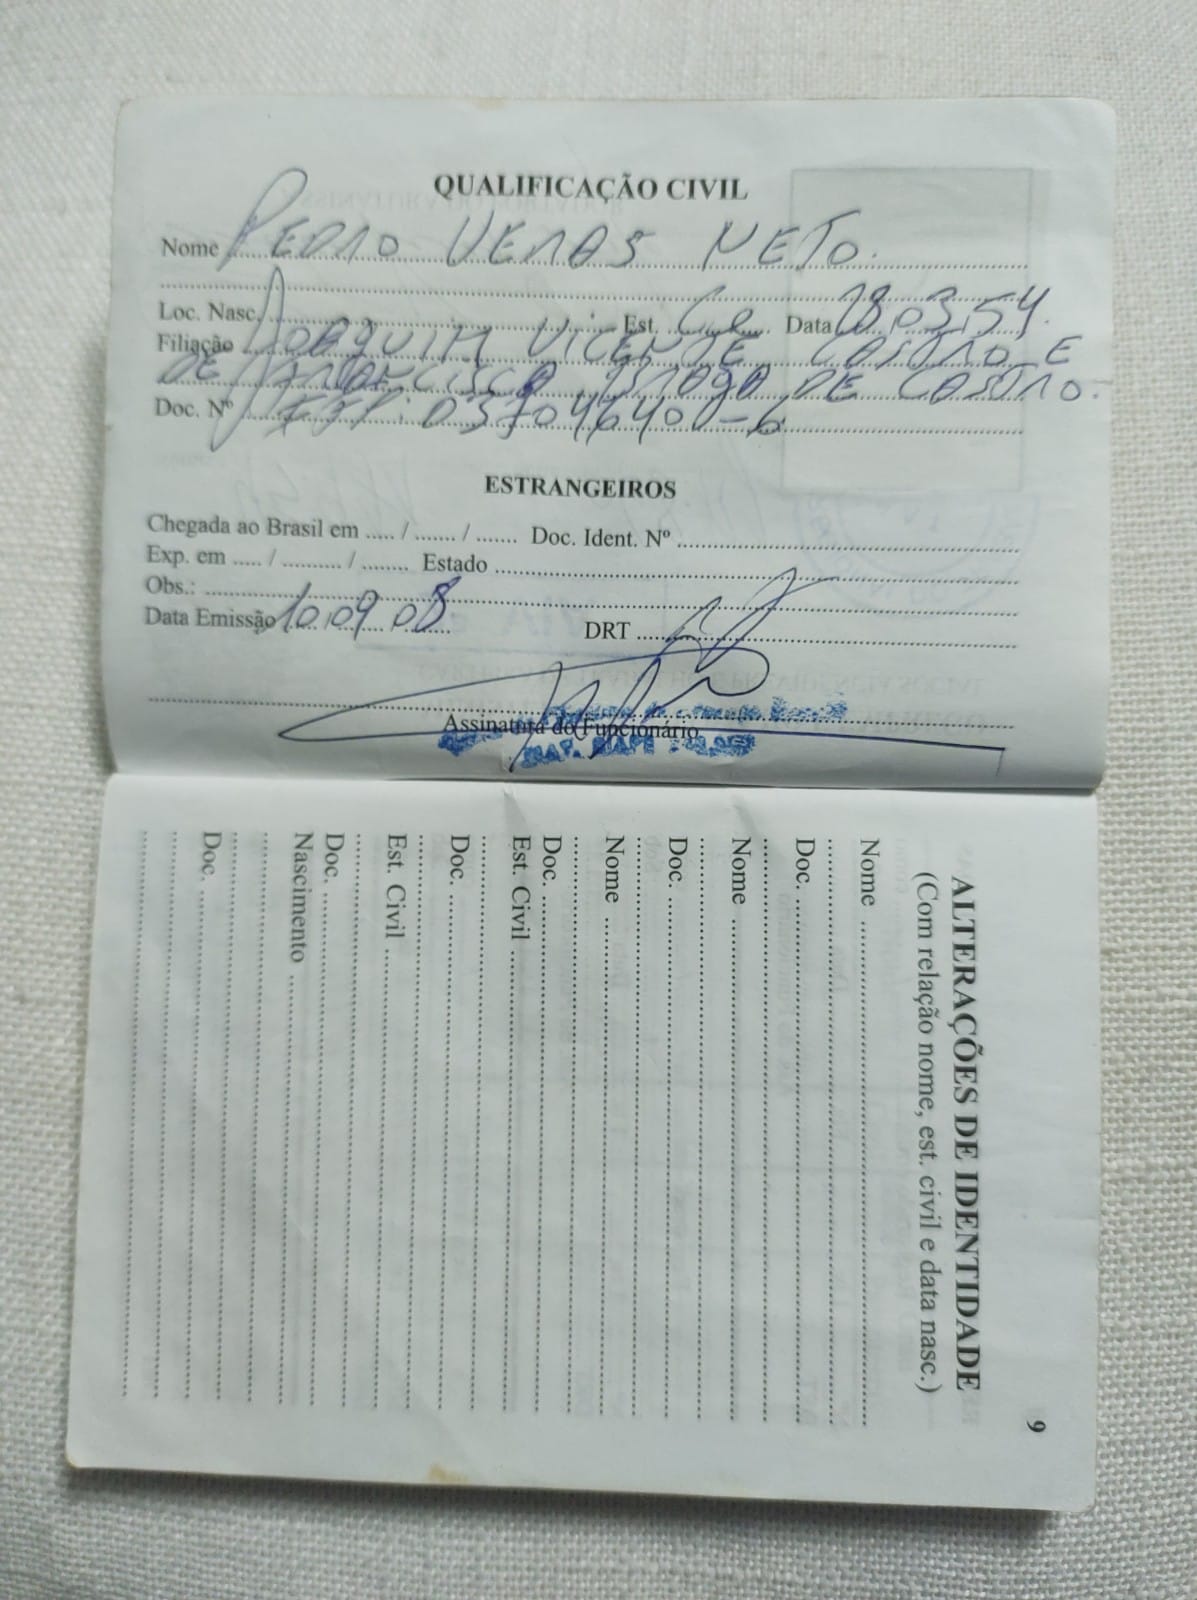 QUALIFICAÇÃO CIVIL
Nome PEDRO VERAS NETO.
Loc. Nasc. Est. Ce Data 18.03.54.
Filiação JOAQUIM VICENTE CASTRO E
DE FRANCISCA BRAGA DE CASTRO.
Doc. Nº 0370464001-6
ESTRANGEIROS
Chegada ao Brasil em ..... / ....... / ....... Doc. Ident. Nº
Exp. em ..... / .......... / ........ Estado
Obs.:
Data Emissão 10.09.08 DRT
Assinatura do Funcionário
9
ALTERAÇÕES DE IDENTIDADE
(Com relação nome, est. civil e data nasc.)
Nome
Doc.
Nome
Doc.
Nome
Doc.
Est. Civil
Doc.
Est. Civil
Doc.
Nascimento
Doc.